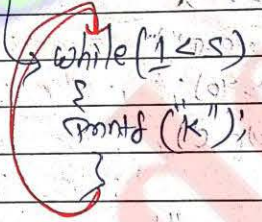 while(1<5)
{
printf("K");
}